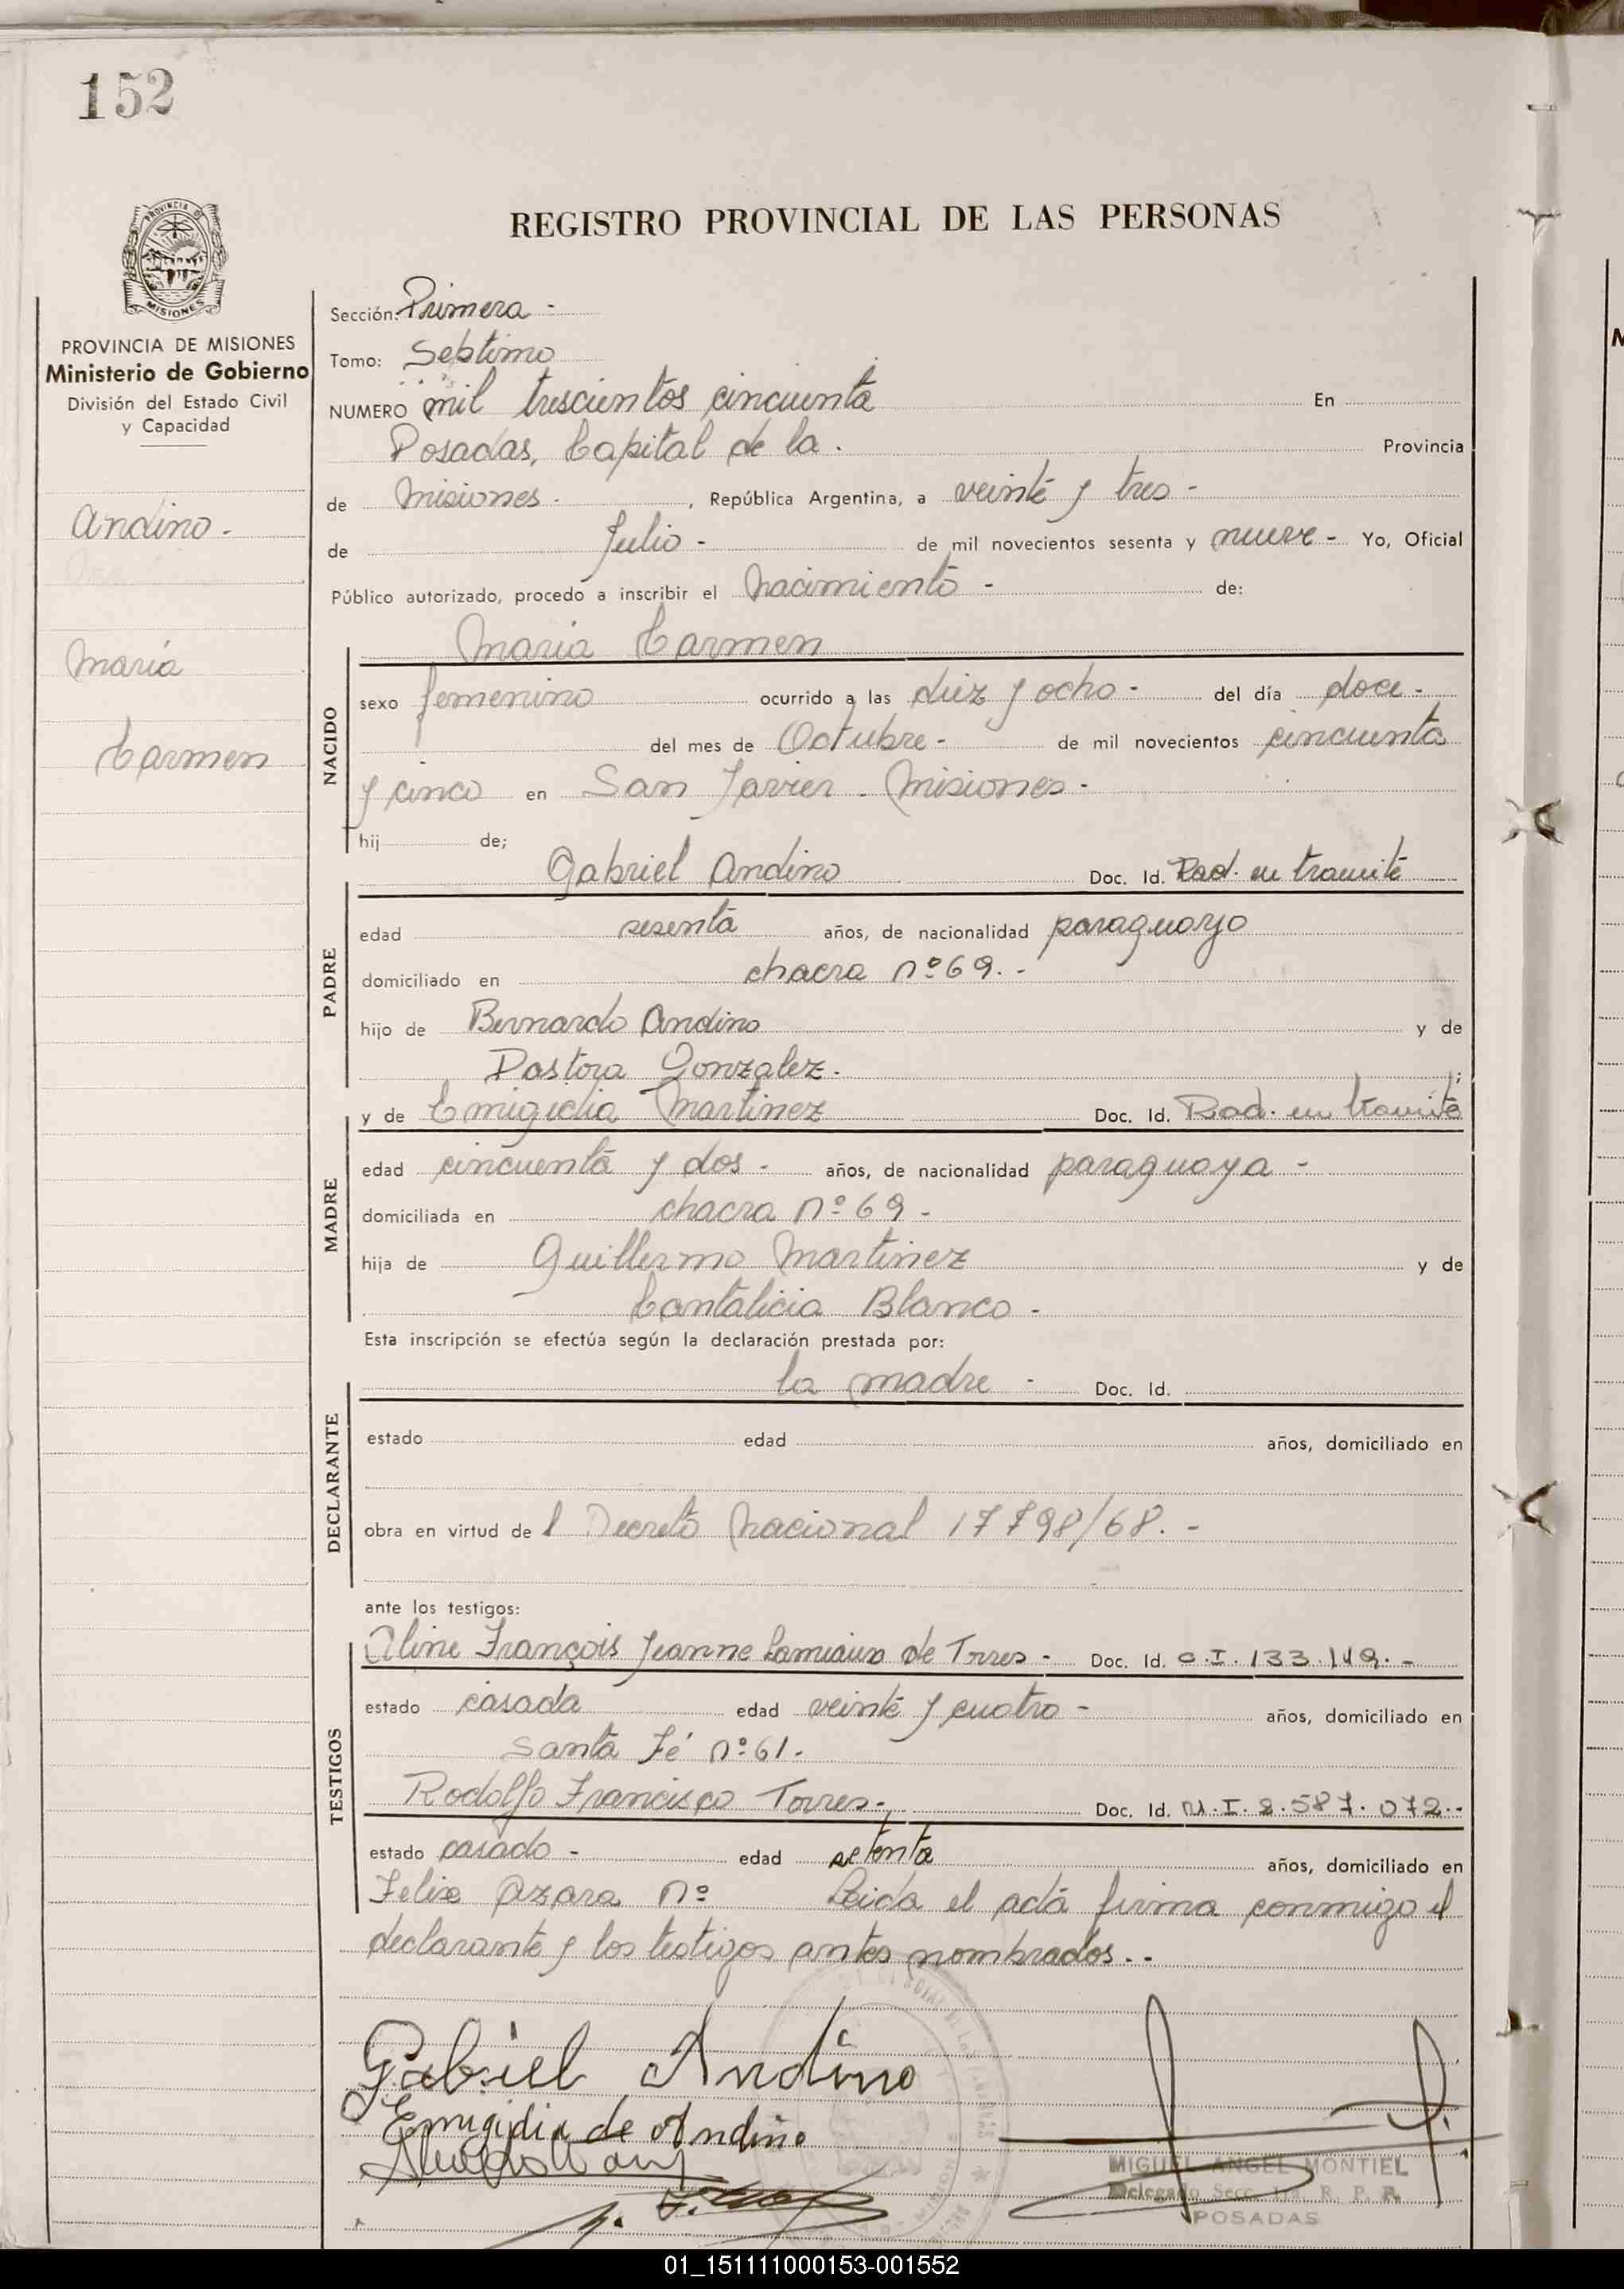 152
REGISTRO PROVINCIAL DE LAS PERSONAS
PROVINCIA DE
MISIONES
PROVINCIA DE MISIONES
Ministerio de Gobierno
División del Estado Civil
y Capacidad
Andino -
María
Carmen
Sección: Primera -
Tomo: Septimo
NUMERO mil trescientos cincuenta En
Posadas, Capital de la. Provincia
de Misiones - , República Argentina, a veinte y tres -
de Julio - de mil novecientos sesenta y nueve - Yo, Oficial
Público autorizado, procedo a inscribir el nacimiento - de:
María Carmen
NACIDO
sexo femenino ocurrido a las diez y ocho - del día doce -
del mes de Octubre - de mil novecientos cincuenta
y cinco en San Javier - Misiones -
hij de;
Gabriel Andino Doc. Id. Rad. en tramite
PADRE
edad sesenta años, de nacionalidad paraguayo
domiciliado en chacra nº 69. -
hijo de Bernardo Andino y de
Pastora Gonzalez. - ;
y de Emigidia Martinez Doc. Id. Rad. en tramite
MADRE
edad cincuenta y dos - años, de nacionalidad paraguaya -
domiciliada en chacra nº 69 -
hija de Guillermo Martinez y de
Cantalicia Blanco -
Esta inscripción se efectúa según la declaración prestada por:
la madre - Doc. Id.
DECLARANTE
estado edad años, domiciliado en
obra en virtud de l Decreto Nacional 17798/68. -
ante los testigos:
Aline François Jeanne de Torres - Doc. Id. C.I. 133.149. -
TESTIGOS
estado casada edad veinte y cuatro - años, domiciliado en
Santa Fé nº 61 -
Rodolfo Francisco Torres - Doc. Id. M.I. 2.587.072 -
estado casado - edad setenta años, domiciliado en
Felix Azara nº Leida el acta firma conmigo el
declarante y los testigos antes nombrados. -
Gabriel Andino
Emigidia de Andino
MIGUEL ANGEL MONTIEL
Delegado Secc. 1ra. R. P. P.
POSADAS
01_151111000153-001552